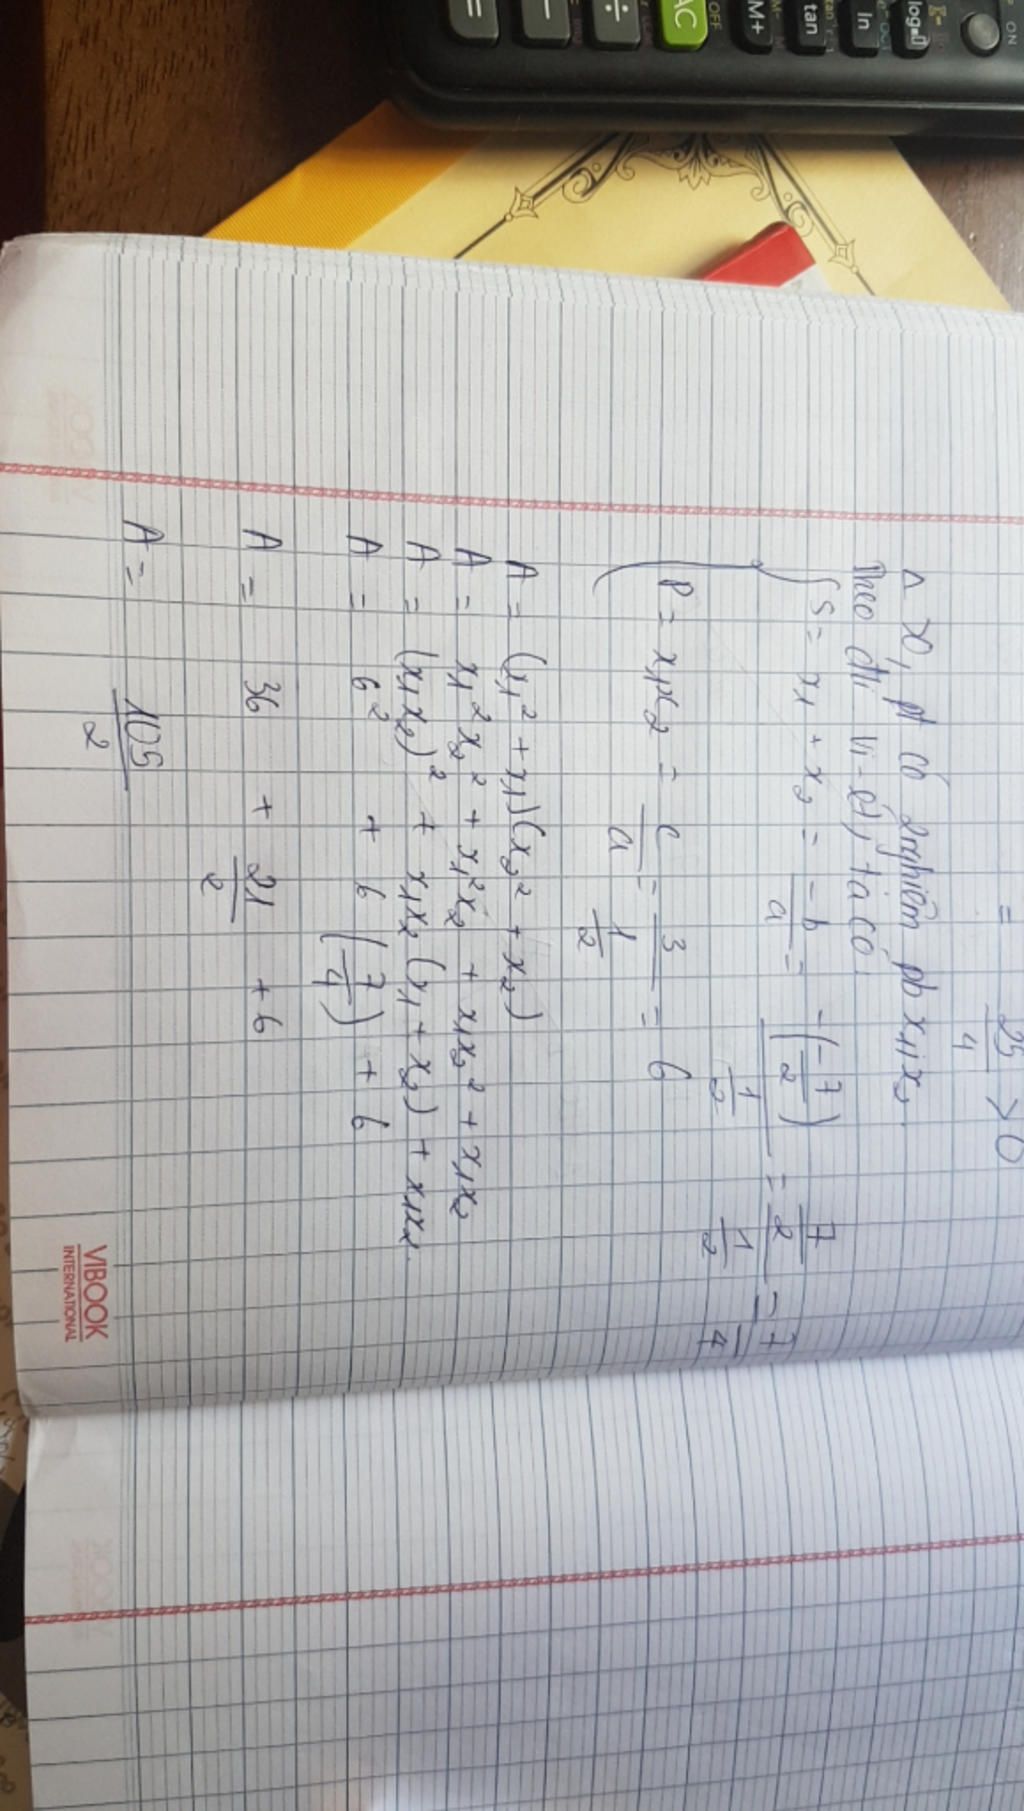 = 25/4 > 0
Δ > 0, pt có 2 nghiệm pb x₁, x₂
Theo đli Vi-ét, ta có:
S = x₁ + x₂ = -b/a = -(-7/2)/(1/2) = (7/2)/(1/2) = 7/4
P = x₁x₂ = c/a = 3/(1/2) = 6
A = (x₁² + x₁)(x₂² + x₂)
A = x₁²x₂² + x₁²x₂ + x₁x₂² + x₁x₂
A = (x₁x₂)² + x₁x₂(x₁ + x₂) + x₁x₂
A = 6² + 6(7/4) + 6
A = 36 + 21/2 + 6
A = 105/2
VIBOOK
INTERNATIONAL
ON
log
ln
tan
M+
OFF
AC
÷
−
=